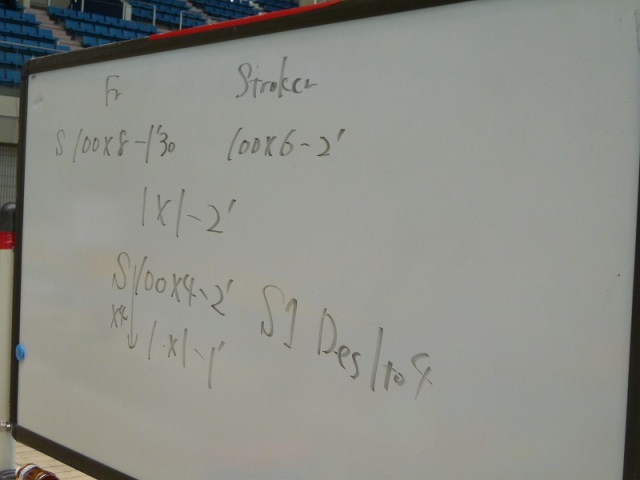 Fr Stroker
S 100×8-1'30 100×6-2'
1×1-2'
S 100×4-2' S1 Des 1 to 4
×4 ↓ 1×1-1'